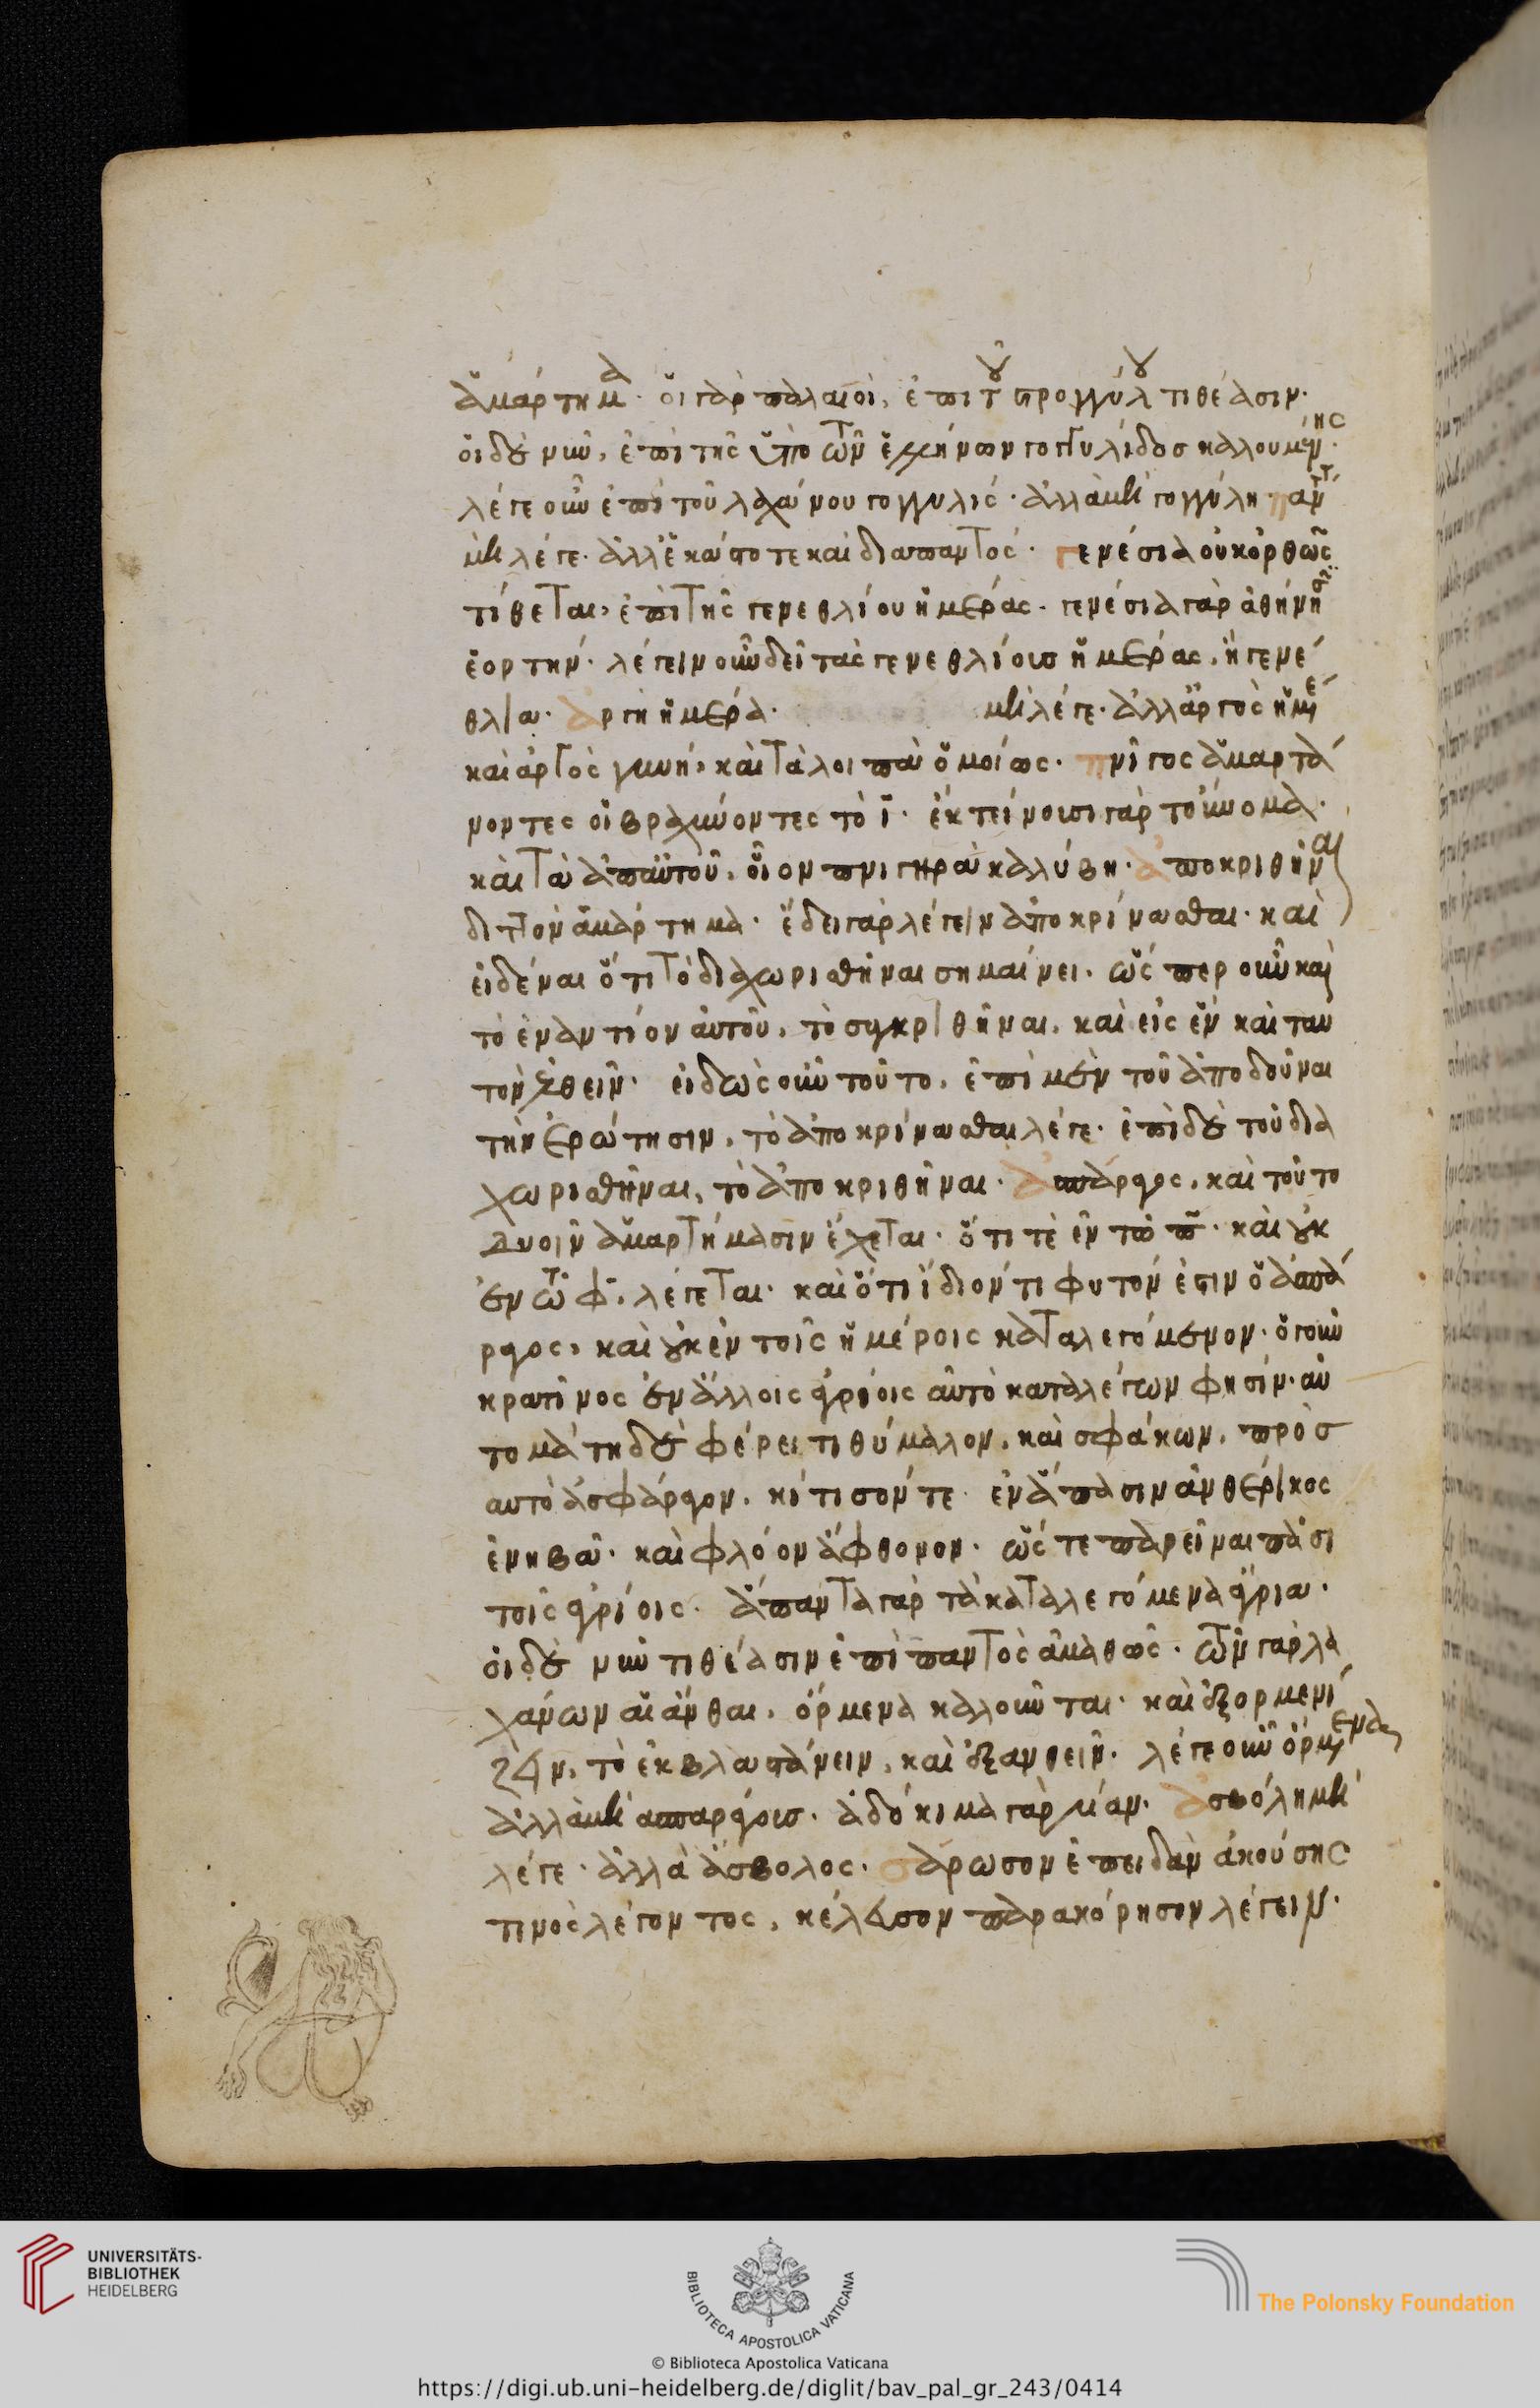 ἁμάρτημα. οἱ γὰρ παλαιοὶ, ἐπὶ τοῦ στρογγύλου τιθέασιν.
οἱ δὲ νῦν, ἐπὶ τῆς ὑπὸ τῶν ἑλλήνων γογγυλίδος καλουμένης.
λέγε οὖν ἐπὶ τοῦ λαχάνου γογγυλίς. ἀλλὰ μὴ γογγύλη. πάντοτε
μὴ λέγε. ἀλλ' ἑκάστοτε καὶ διαπαντός. γενέσια οὐκ ὀρθῶς
τίθεται, ἐπὶ τῆς γενεθλίου ἡμέρας. γενέσια γὰρ ἀθήνησιν
ἑορτήν. λέγειν οὖν δεῖ τὰς γενεθλίους ἡμέρας, ἢ γενέ
θλια. ἀργὴ ἡμέρα. μὴ λέγε. ἀλλ' ἀργὸς ἡμέρα
καὶ ἀργὸς γυνή, καὶ τὰ λοιπὰ ὁμοίως. πνῖγος ἁμαρτά
νοντες οἱ βραχύνοντες τὸ ι. ἐκτείνουσι γὰρ τοὔνομα.
καὶ τὰ ἀπ' αὐτοῦ, οἷον πνιγηρὰ καλύβη. ἀποκριθῆναι
διττὸν ἁμάρτημα. ἔδει γὰρ λέγειν ἀποκρίνασθαι. καὶ
εἰδέναι ὅτι τὸ διαχωρισθῆναι σημαίνει. ὥσπερ οὖν καὶ
τὸ ἐναντίον αὐτοῦ, τὸ συγκριθῆναι, καὶ εἰς ἓν καὶ ταυ
τὸν ἐλθεῖν. εἰδὼς οὖν τοῦτο, ἐπὶ μὲν τοῦ ἀποδοῦναι
τὴν ἐρώτησιν, τὸ ἀποκρίνασθαι λέγε. ἐπὶ δὲ τοῦ δια
χωρισθῆναι, τὸ ἀποκριθῆναι. ἀσπάραγος, καὶ τοῦτο
δυοῖν ἁμαρτήμασιν ἔχεται. ὅτι τὲ ἐν τῷ π. καὶ οὐκ
ἐν τῷ φ. λέγεται. καὶ ὅτι ἴδιόν τι φυτόν ἐστιν ὁ ἀσπά
ραγος, καὶ οὐκ ἐν τοῖς ἡμέροις καταλεγόμενον. ὅ γ' οὖν
κρατῖνος ἐν ἄλλοις ἀγρίοις αὐτὸ καταλέγων φησίν. αὐ
τομάτη δὲ φέρει τιθύμαλον, καὶ σφάκων, πρὸς
αυτὸ ἀσφάραγον, κύτισόν τε ἐν ἅπασιν ἀνθέρικος
ἐνηβᾷ. καὶ φλόον ἄφθονον. ὥστε παρεῖναι πᾶσι
τοῖς ἀγρίοις. ἅπαντα γὰρ τὰ καταλεγόμενα ἄγρια.
οἱ δὲ νῦν τιθέασιν ἐπὶ παντὸς ἀμαθῶς. τῶν γὰρ λα
χάνων αἱ ἄνθαι, ὄρμενα καλοῦνται. καὶ ἐξορμενί
ζειν, τὸ ἐκβλαστάνειν, καὶ ἐξανθεῖν. λέγε οὖν ὄρμενα,
ἀλλὰ μὴ ἀσπαράγους. ἀδόκιμα γὰρ λίαν. ἀσβόλη μὴ
λέγε. ἀλλὰ ἄσβολος. σάρωσον ἐπειδὰν ἀκούσῃς
τινὸς λέγοντος, κέλευσον παρακόρησον λέγειν.
UNIVERSITÄTS-
BIBLIOTHEK
HEIDELBERG
BIBLIOTECA APOSTOLICA VATICANA
The Polonsky Foundation
© Biblioteca Apostolica Vaticana
https://digi.ub.uni-heidelberg.de/diglit/bav_pal_gr_243/0414